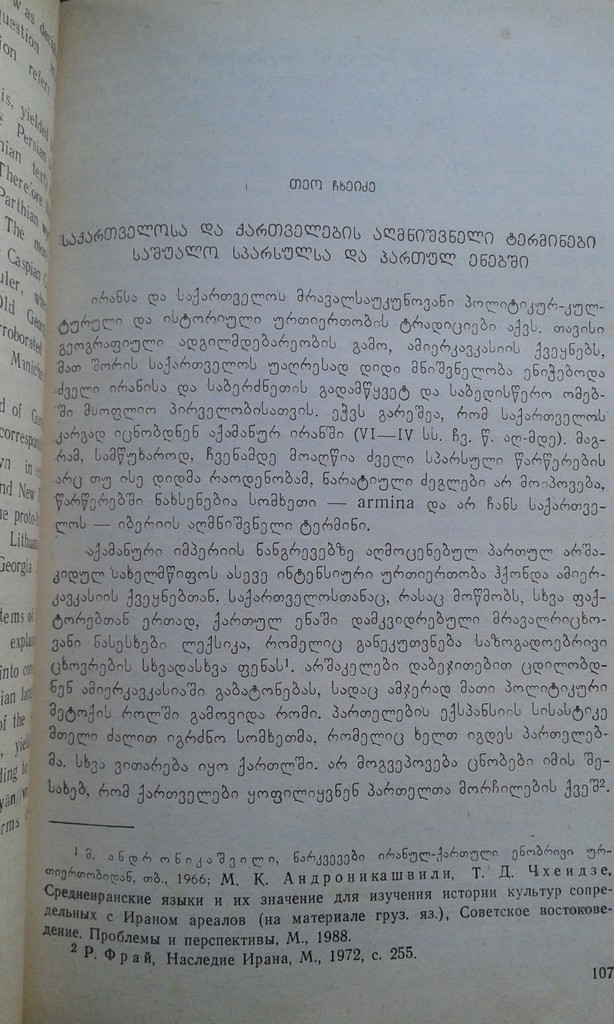 თეო ჩხეიძე
საქართველოსა და ქართველების აღმნიშვნელი ტერმინები
საშუალო სპარსულსა და პართულ ენებში
ირანსა და საქართველოს მრავალსაუკუნოვანი პოლიტიკურ-კულ-
ტურული და ისტორიული ურთიერთობის ტრადიციები აქვს. თავისი
გეოგრაფიული ადგილმდებარეობის გამო, ამიერკავკასიის ქვეყნებს,
მათ შორის საქართველოს უაღრესად დიდი მნიშვნელობა ენიჭებოდა
ძველი ირანისა და საბერძნეთის გადამწყვეტ და საბედისწერო ომებ-
ში მსოფლიო პირველობისათვის. ეჭვს გარეშეა, რომ საქართველოს
კარგად იცნობდნენ აქამანურ ირანში (VI—IV სს. ჩვ. წ. აღ-მდე). მაგ-
რამ, სამწუხაროდ, ჩვენამდე მოაღწია ძველი სპარსული წარწერების
არც თუ ისე დიდმა რაოდენობამ, ნარატიული ძეგლები არ მოიპოვება,
წარწერებში ნახსენებია სომხეთი — armina და არ ჩანს საქართვე-
ლოს — იბერიის აღმნიშვნელი ტერმინი.
აქამანური იმპერიის ნანგრევებზე აღმოცენებულ პართულ არშა-
კიდულ სახელმწიფოს ასევე ინტენსიური ურთიერთობა ჰქონდა ამიერ-
კავკასიის ქვეყნებთან, საქართველოსთანაც, რასაც მოწმობს, სხვა ფაქ-
ტორებთან ერთად, ქართულ ენაში დამკვიდრებული მრავალრიცხო-
ვანი ნასესხები ლექსიკა, რომელიც განეკუთვნება საზოგადოებრივი
ცხოვრების სხვადასხვა ფენას¹. არშაკელები დაბეჯითებით ცდილობდ-
ნენ ამიერკავკასიაში გაბატონებას, სადაც ამჯერად მათი პოლიტიკური
მეტოქის როლში გამოვიდა რომი. პართელების ექსპანსიის სისასტიკე
მთელი ძალით იგრძნო სომხეთმა, რომელიც ხელთ იგდეს პართელებ-
მა. სხვა ვითარება იყო ქართლში. არ მოგვეპოვება ცნობები იმის შე-
სახებ, რომ ქართველები ყოფილიყვნენ პართელთა მორჩილების ქვეშ².
¹ მ. ანდრონიკაშვილი, ნარკვევები ირანულ-ქართული ენობრივი ურ-
თიერთობიდან, თბ., 1966; М. К. Андроникашвили, Т. Д. Чхеидзе,
Среднеиранские языки и их значение для изучения истории культур сопре-
дельных с Ираном ареалов (на материале груз. яз.), Советское востокове-
дение. Проблемы и перспективы, М., 1988.
² Р. Фрай, Наследие Ирана, М., 1972, с. 255.
107